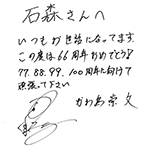 石森さんへ
いつもお世話になってます
この度は66周年おめでとう!
77.88.99.100周年に向けて
頑張って下さい